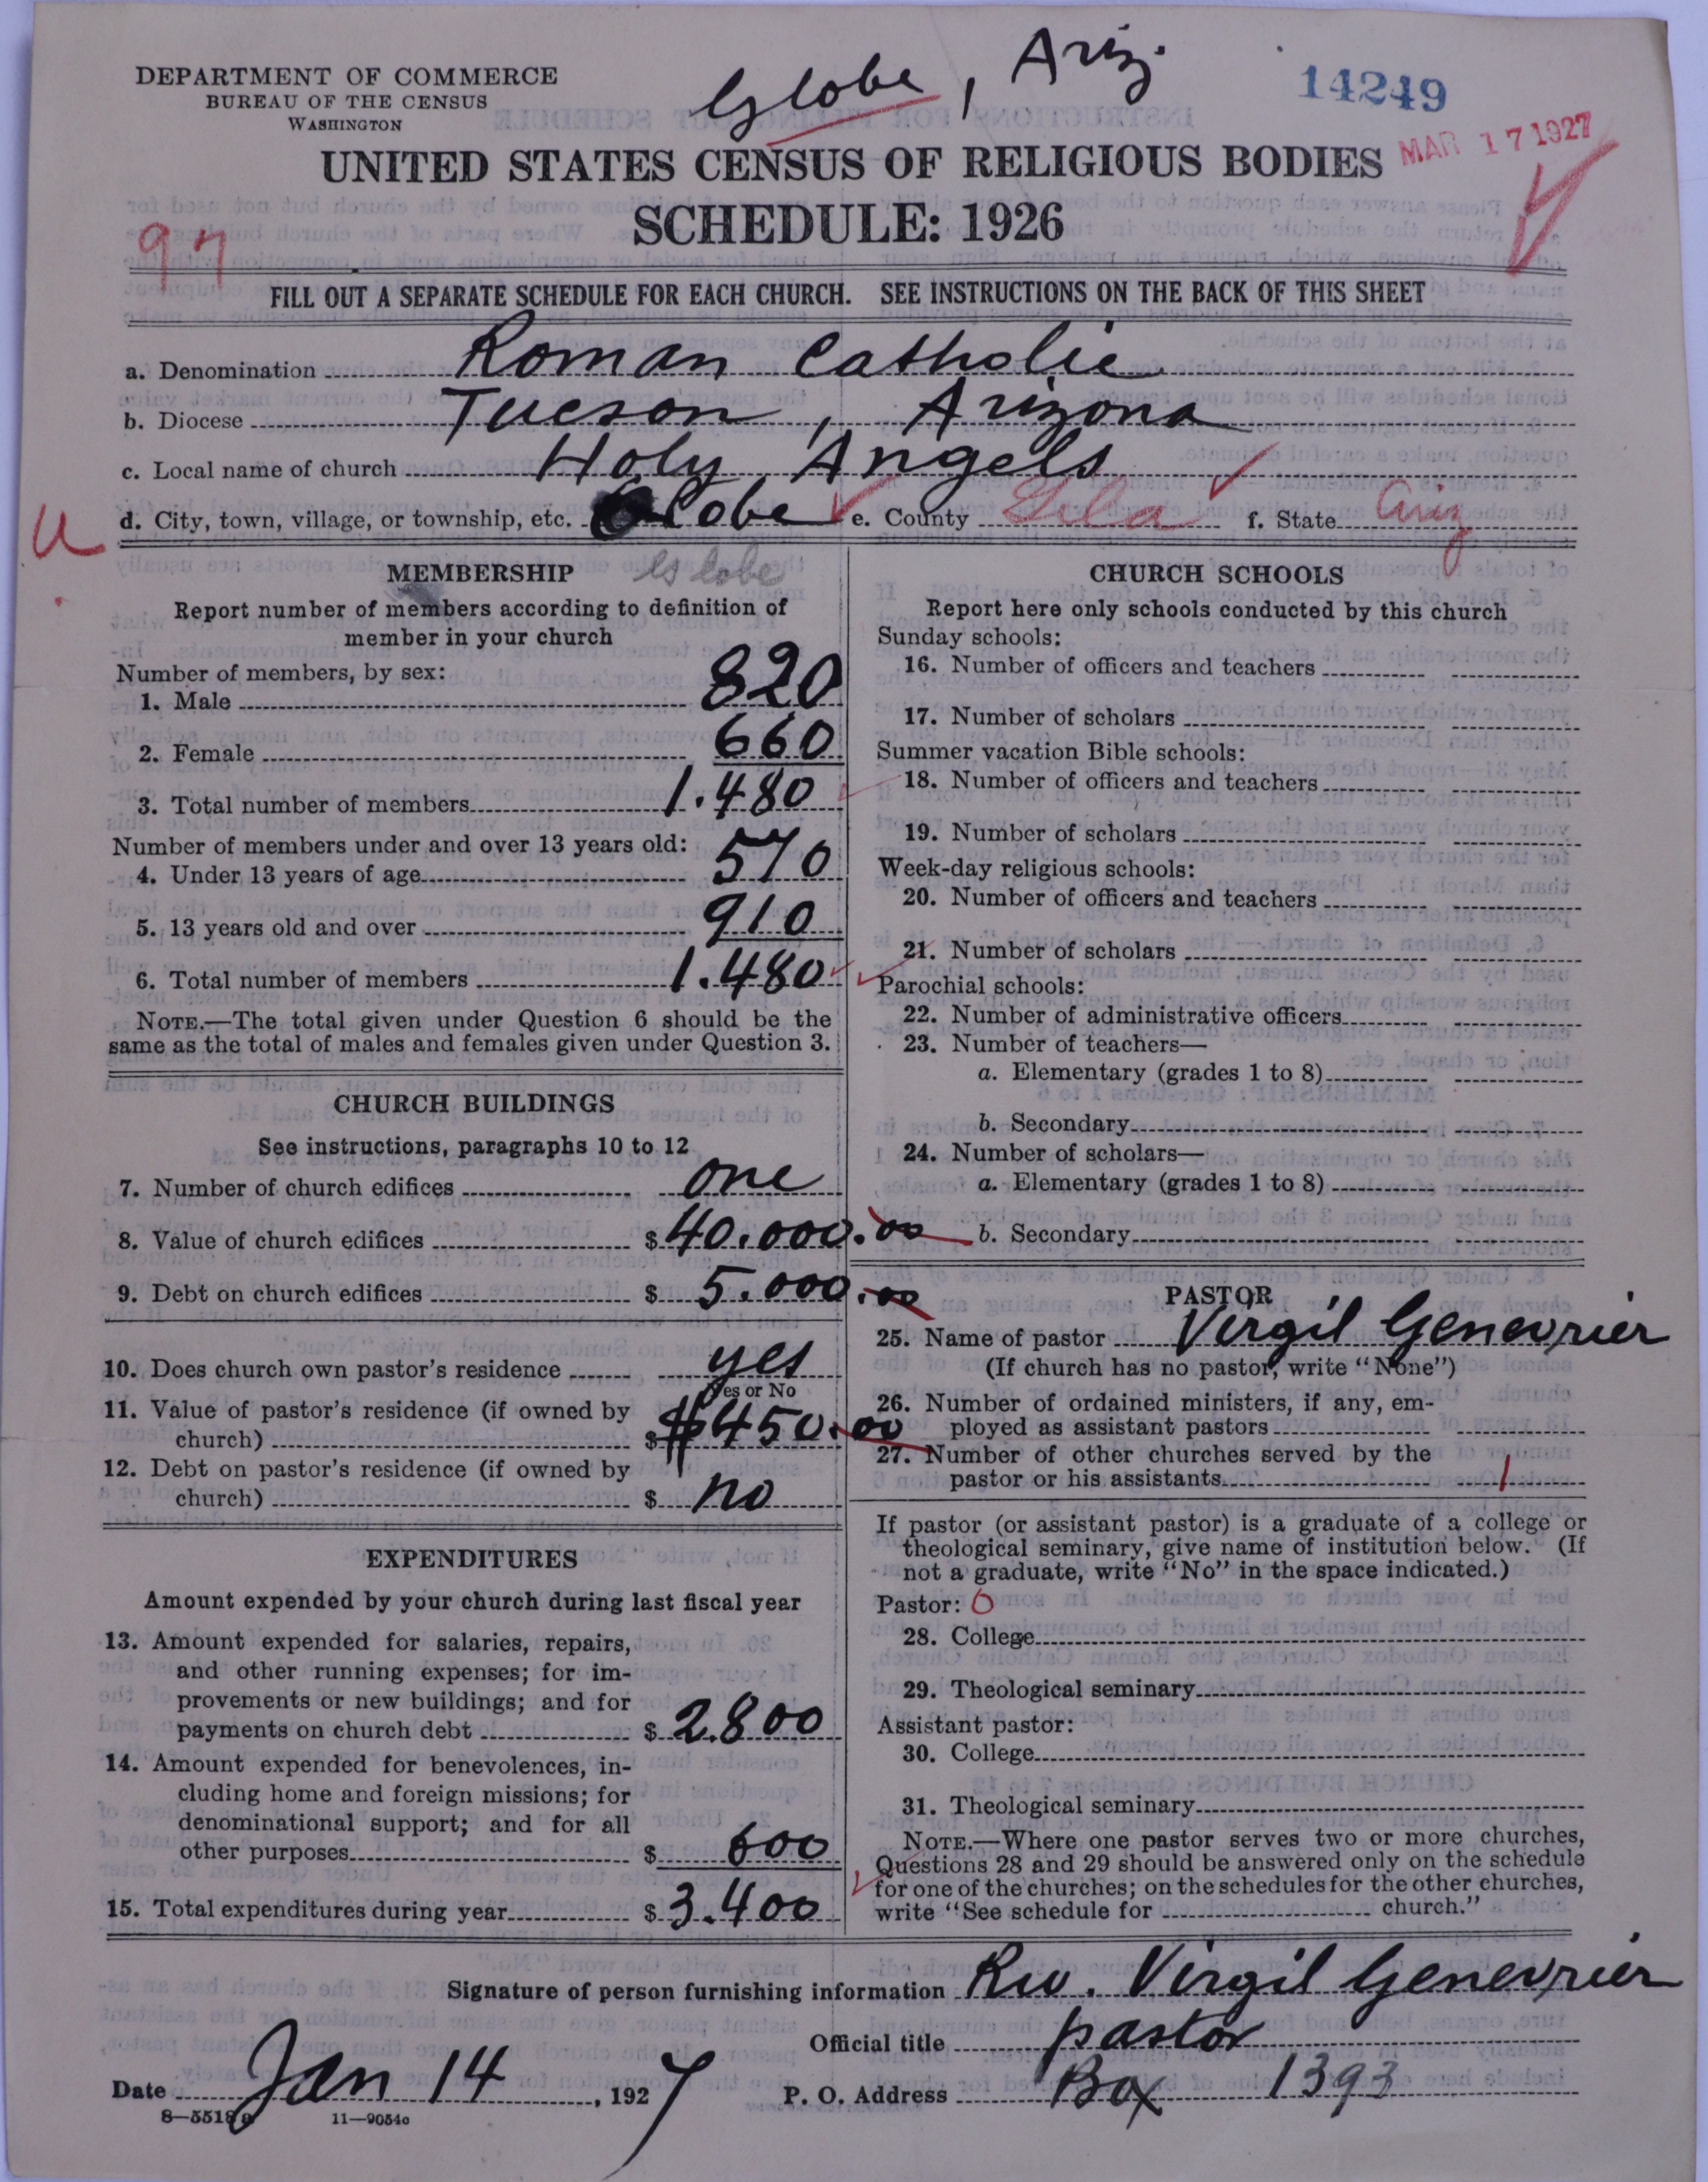 Globe, Ariz.
14249
DEPARTMENT OF COMMERCE
BUREAU OF THE CENSUS
WASHINGTON
MAR 17 1927
UNITED STATES CENSUS OF RELIGIOUS BODIES
SCHEDULE: 1926
97
FILL OUT A SEPARATE SCHEDULE FOR EACH CHURCH. SEE INSTRUCTIONS ON THE BACK OF THIS SHEET
a. Denomination Roman Catholic
b. Diocese Tucson, Arizona
c. Local name of church Holy Angels
d. City, town, village, or township, etc. Globe e. County Gila f. State Ariz
U
MEMBERSHIP Globe
Report number of members according to definition of
member in your church
Number of members, by sex:
1. Male 820
2. Female 660
3. Total number of members 1.480
Number of members under and over 13 years old:
4. Under 13 years of age 570
5. 13 years old and over 910
6. Total number of members 1.480
NOTE.—The total given under Question 6 should be the
same as the total of males and females given under Question 3.
CHURCH BUILDINGS
See instructions, paragraphs 10 to 12
7. Number of church edifices one
8. Value of church edifices $ 40.000.00
9. Debt on church edifices $ 5.000.00
10. Does church own pastor's residence yes
Yes or No
11. Value of pastor's residence (if owned by
church) $ $450.00
12. Debt on pastor's residence (if owned by
church) $ no
EXPENDITURES
Amount expended by your church during last fiscal year
13. Amount expended for salaries, repairs,
and other running expenses; for im-
provements or new buildings; and for
payments on church debt $ 2.800
14. Amount expended for benevolences, in-
cluding home and foreign missions; for
denominational support; and for all
other purposes $ 600
15. Total expenditures during year $ 3.400
CHURCH SCHOOLS
Report here only schools conducted by this church
Sunday schools:
16. Number of officers and teachers
17. Number of scholars
Summer vacation Bible schools:
18. Number of officers and teachers
19. Number of scholars
Week-day religious schools:
20. Number of officers and teachers
21. Number of scholars
Parochial schools:
22. Number of administrative officers
23. Number of teachers—
a. Elementary (grades 1 to 8)
b. Secondary
24. Number of scholars—
a. Elementary (grades 1 to 8)
b. Secondary
PASTOR
25. Name of pastor Virgil Genevrier
(If church has no pastor, write "None")
26. Number of ordained ministers, if any, em-
ployed as assistant pastors
27. Number of other churches served by the
pastor or his assistants 1
If pastor (or assistant pastor) is a graduate of a college or
theological seminary, give name of institution below. (If
not a graduate, write "No" in the space indicated.)
Pastor: 0
28. College
29. Theological seminary
Assistant pastor:
30. College
31. Theological seminary
NOTE.—Where one pastor serves two or more churches,
Questions 28 and 29 should be answered only on the schedule
for one of the churches; on the schedules for the other churches,
write "See schedule for church."
Signature of person furnishing information Rev. Virgil Genevrier
Official title pastor
Date Jan 14, 1927 P. O. Address Box 1393
8—5518a 11—9054a